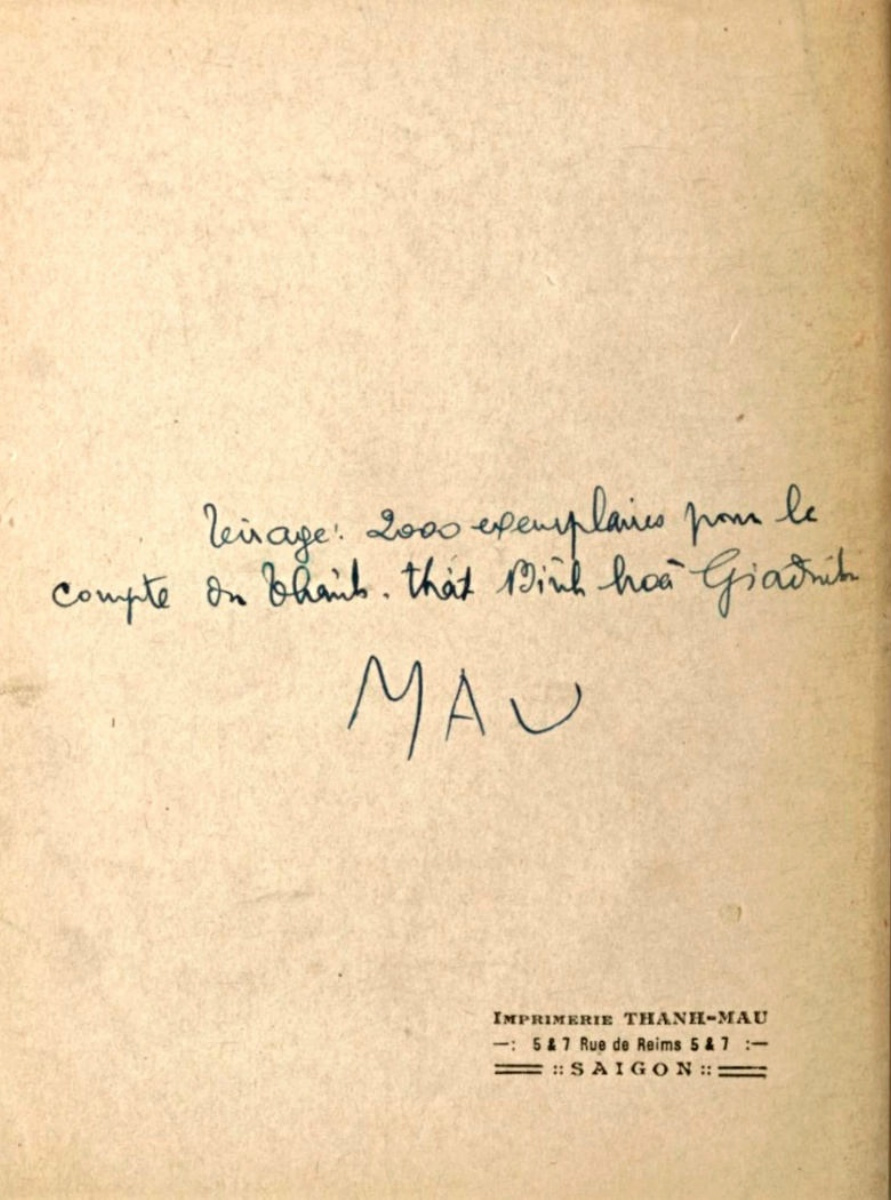 Tirage: 2000 exemplaires pour le
compte du Thánh-thất Bình hoà Giađịnh
MAU
IMPRIMERIE THANH-MAU
—: 5 & 7 Rue de Reims 5 & 7 :—
:: SAIGON ::